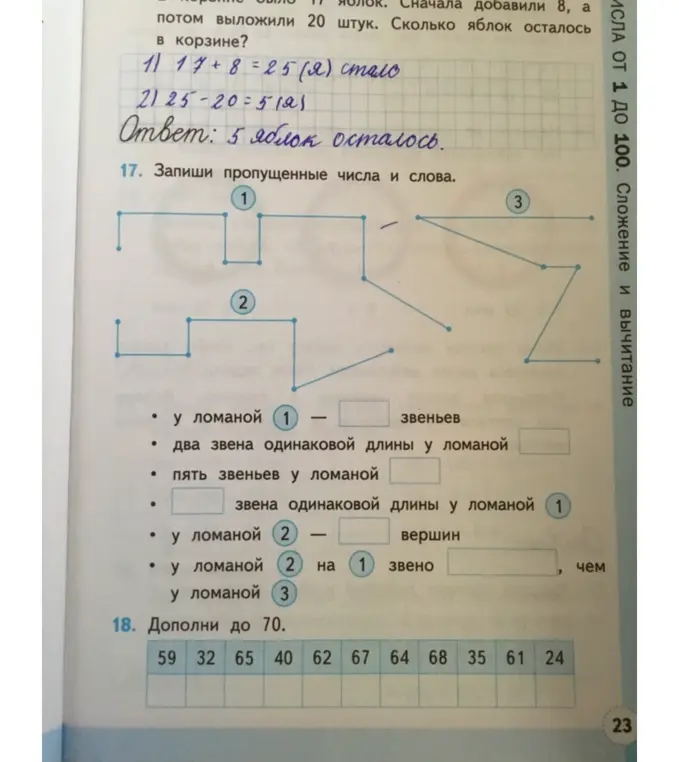 было 17 яблок. Сначала добавили 8, а
потом выложили 20 штук. Сколько яблок осталось
в корзине?
1) 17 + 8 = 25 (я) стало
2) 25 - 20 = 5 (я)
Ответ: 5 яблок осталось.
17. Запиши пропущенные числа и слова.
1
3
2
• у ломаной 1 — звеньев
• два звена одинаковой длины у ломаной
• пять звеньев у ломаной
• звена одинаковой длины у ломаной 1
• у ломаной 2 — вершин
• у ломаной 2 на 1 звено , чем
у ломаной 3
18. Дополни до 70.
59 32 65 40 62 67 64 68 35 61 24
23
ИСЛА ОТ 1 ДО 100. Сложение и вычитание